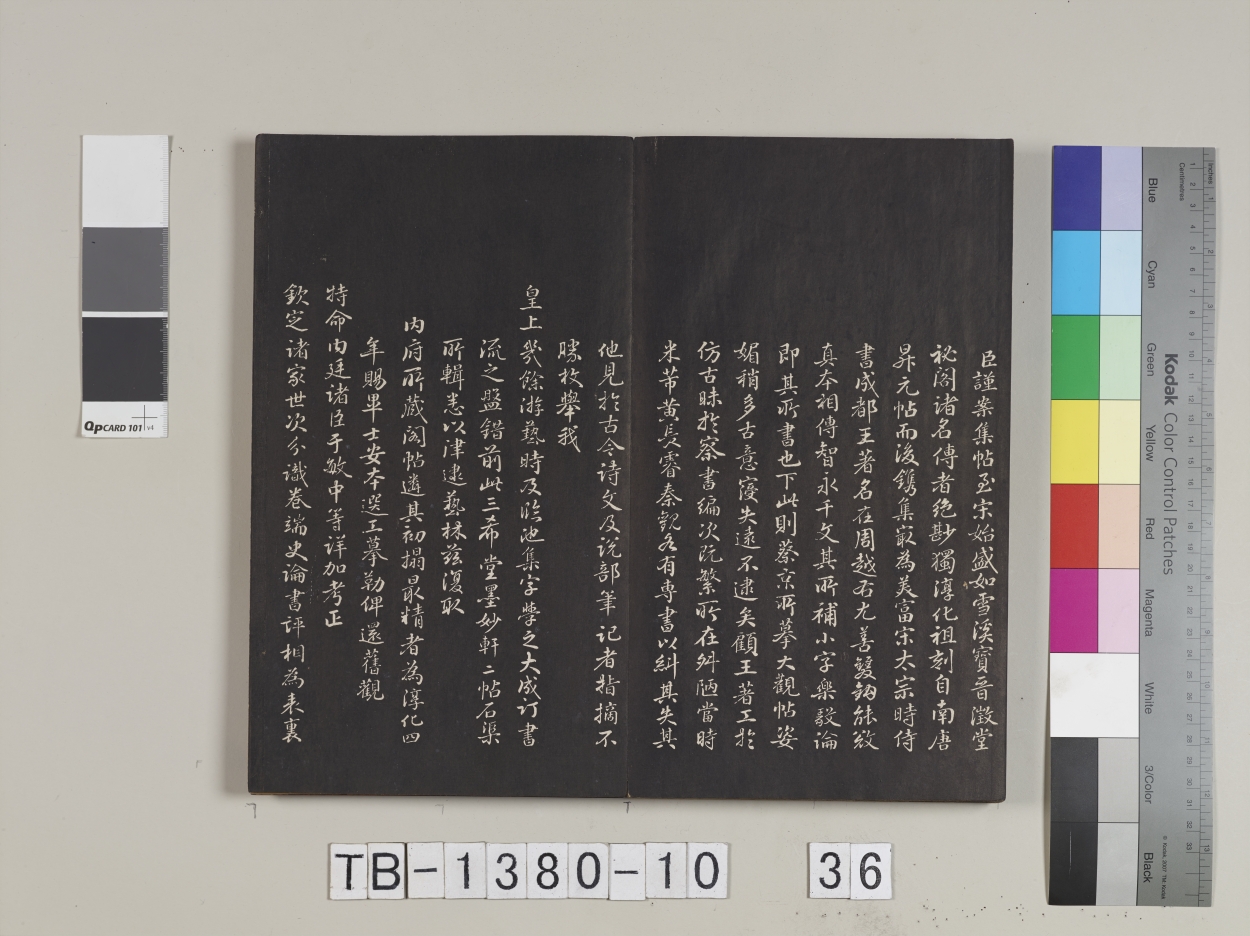 臣謹案集帖至宋始盛如雪溪寶晉澂堂
祕閣諸名傳者絶尟獨淳化祖刻自南唐
昇元帖而後鐫集最為美富宋太宗時侍
書成都王著名在周越右尤善雙鉤能效
真本相傳智永千文其所補小字樂毅論
即其所書也下此則蔡京所摹大觀帖姿
媚稍多古意寖失遠不逮矣顧王著工於
仿古昧於察書編次既繁所在舛陋當時
米芾黄長睿秦觀各有専書以糾其失其
他見於古今詩文及說部筆記者指摘不
勝枚舉我
皇上幾餘游藝時及臨池集字學之大成訂書
流之盤錯前此三希堂墨妙軒二帖石渠
所輯悉以津逮藝林兹復取
内府所藏閣帖遴其初搨最精者為淳化四
年賜畢士安本選工摹勒俾還舊觀
特命内廷諸臣于敏中等詳加考正
欽定諸家世次分識卷端史論書評相為表裏
QPCARD 101 v4
Kodak Color Control Patches
Blue
Cyan
Green
Yellow
Red
Magenta
White
3/Color
Black
Inches
Centimetres
© Kodak, 2007 TM: Kodak
TB-1380-10 36